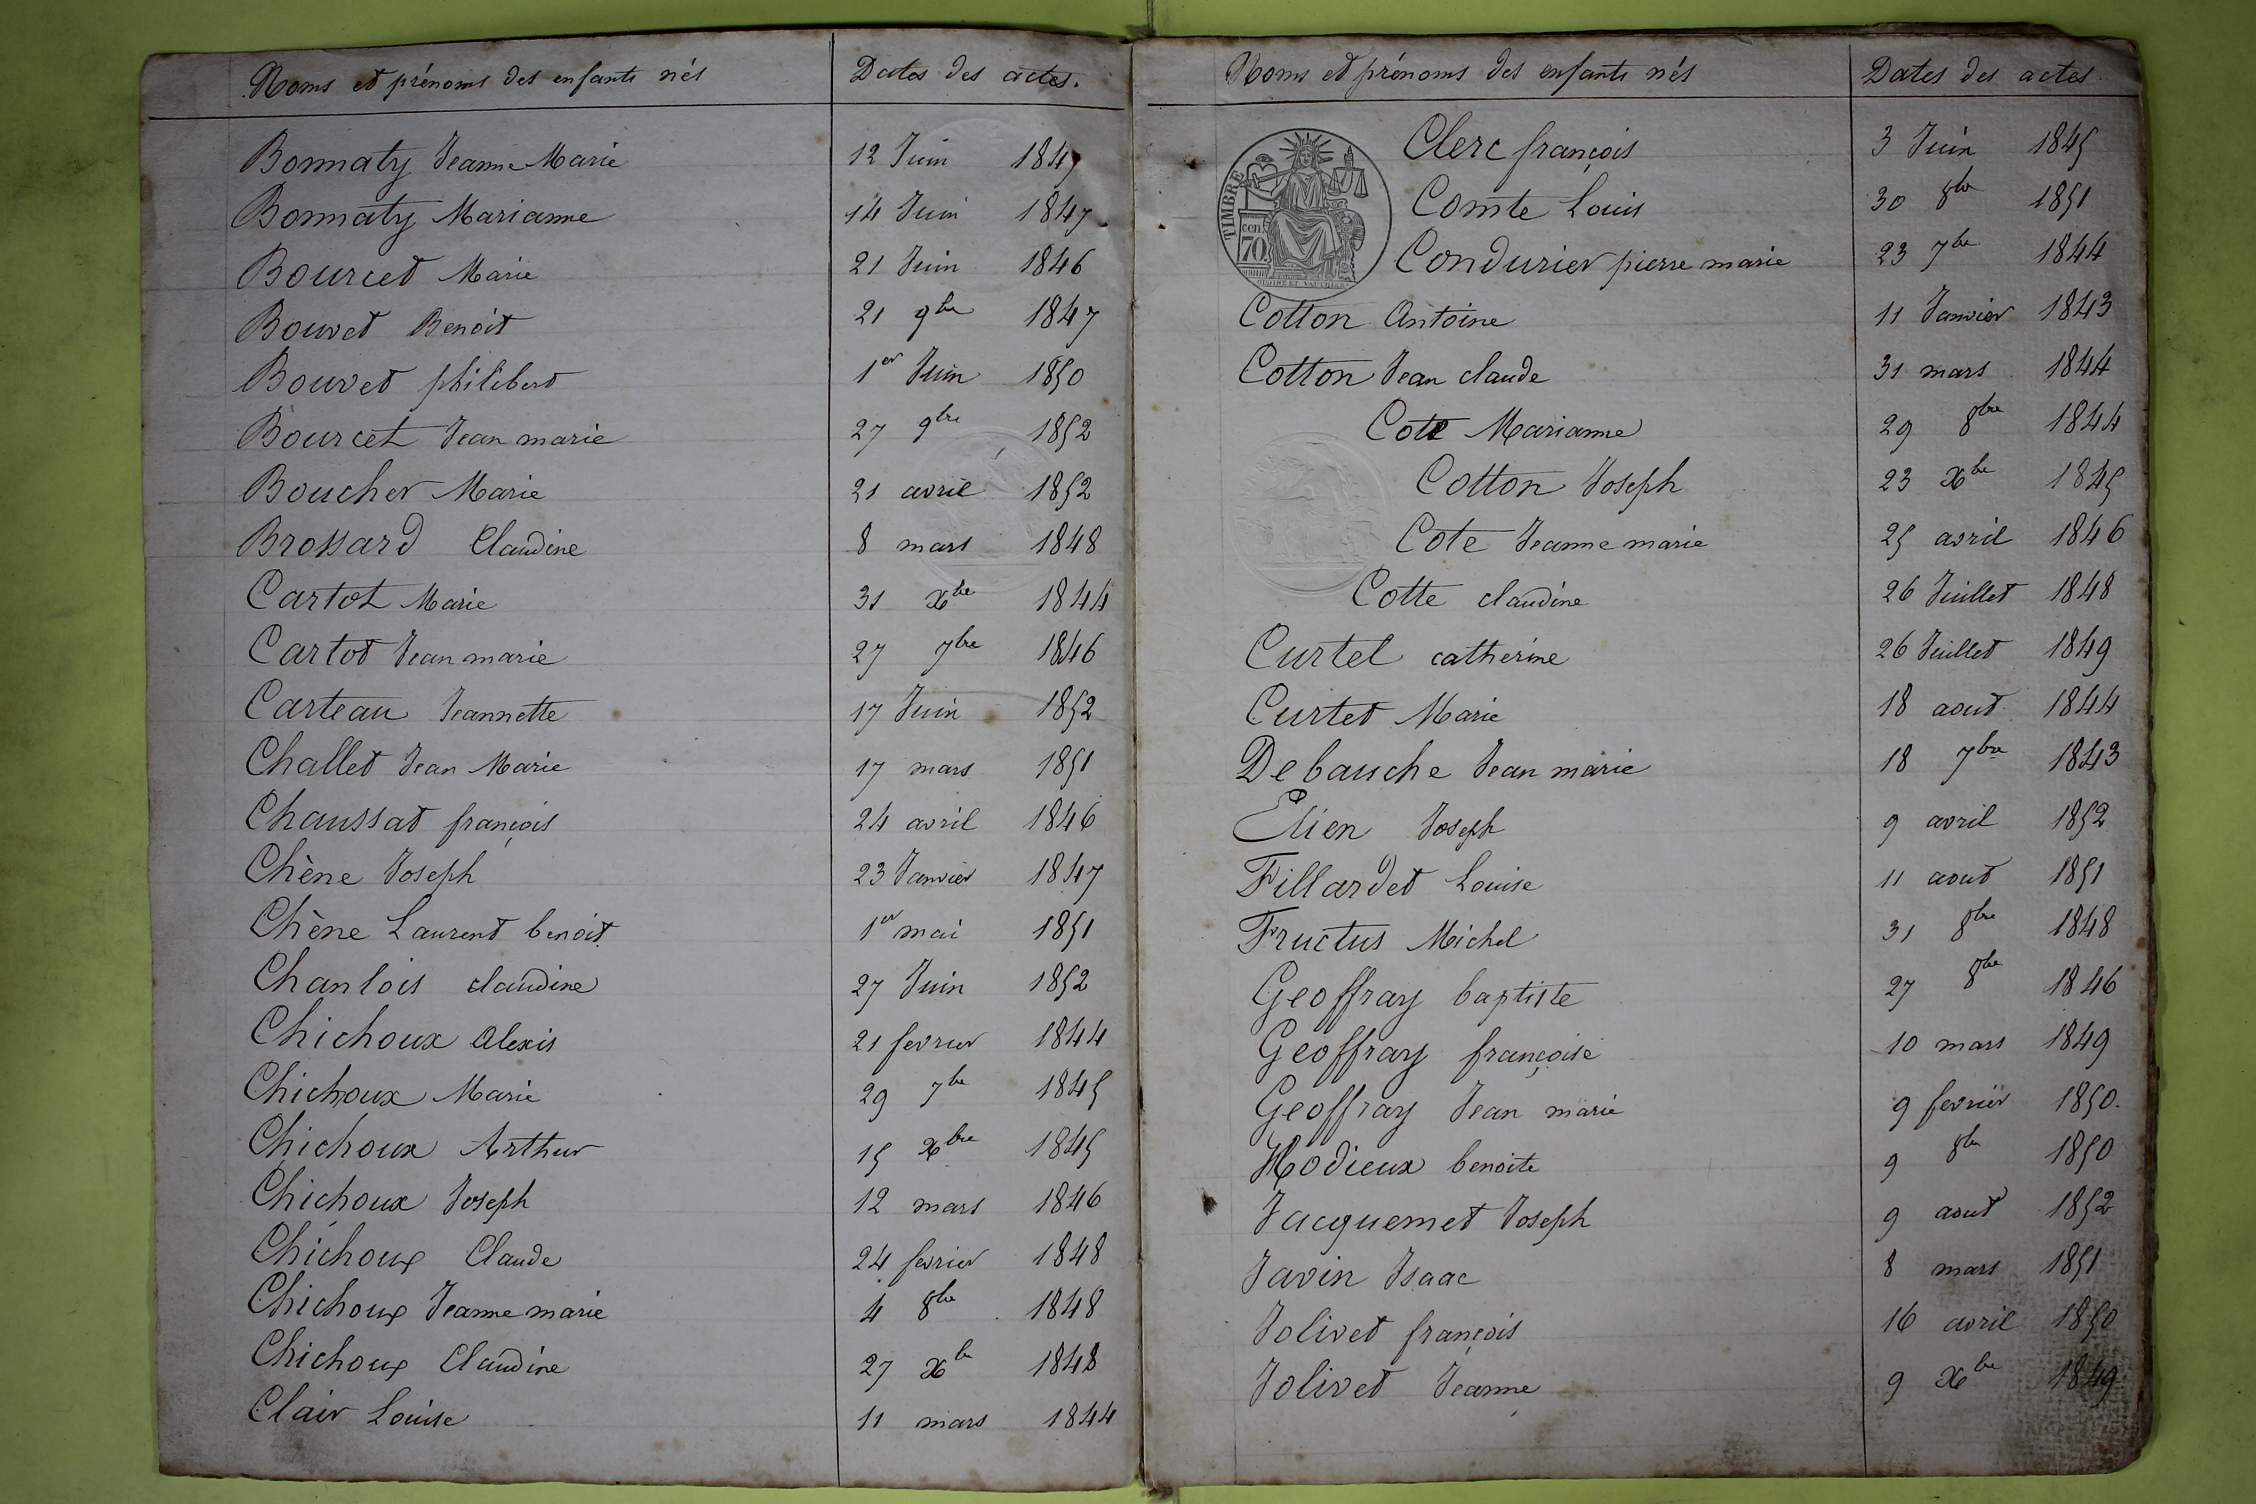 Noms et prénoms des enfants nés Dates des actes.
Bonnaty Jeanne Marie 12 Juin 1847
Bonnaty Marianne 14 Juin 1847
Bourcet Marie 21 Juin 1846
Bouvet Benoit 21 9bre 1847
Bouvet philibert 1er Juin 1850
Bourcet Jean marie 27 9bre 1852
Boucher Marie 21 avril 1852
Brossard Claudine 8 mars 1848
Cartot Marie 31 Xbre 1844
Cartot Jean marie 27 7bre 1846
Carteau Jeannette 17 Juin 1852
Challet Jean Marie 17 mars 1851
Chaussat françois 24 avril 1846
Chène Joseph 23 Janvier 1847
Chène Laurent benoit 1er mai 1851
Chanlois claudine 27 Juin 1852
Chichoux Alexis 21 fevrier 1844
Chichoux Marie 29 7bre 1845
Chichoux Arthur 15 Xbre 1845
Chichoux Joseph 12 mars 1846
Chichoux Claude 24 fevrier 1848
Chichoux Jeanne marie 4 8bre 1848
Chichoux Claudine 27 Xbre 1848
Clair Louise 11 mars 1844
Noms et prénoms des enfants nés Dates des actes
TIMBRE
70 cen
Clerc françois 3 Juin 1845
Comte Louis 30 8bre 1851
Condurier pierre marie 23 7bre 1844
Cotton Antoine 11 Janvier 1843
Cotton Jean claude 31 mars 1844
Cote Marianne 29 8bre 1844
Cotton Joseph 23 Xbre 1845
Cote Jeanne marie 25 avril 1846
Cotte claudine 26 Juillet 1848
Curtel catherine 26 Juillet 1849
Curtet Marie 18 aout 1844
Debauche Jean marie 18 7bre 1843
Elien Joseph 9 avril 1852
Fillardet Louise 11 aout 1851
Fructus Michel 31 8bre 1848
Geoffray baptiste 27 8bre 1846
Geoffray françoise 10 mars 1849
Geoffray Jean marie 9 fevrier 1850.
Hodieux benoite 9 8bre 1850
Jacquemet Joseph 9 aout 1852
Javin Isaac 8 mars 1851
Jolivet françois 16 avril 1850
Jolivet Jeanne 9 Xbre 1849